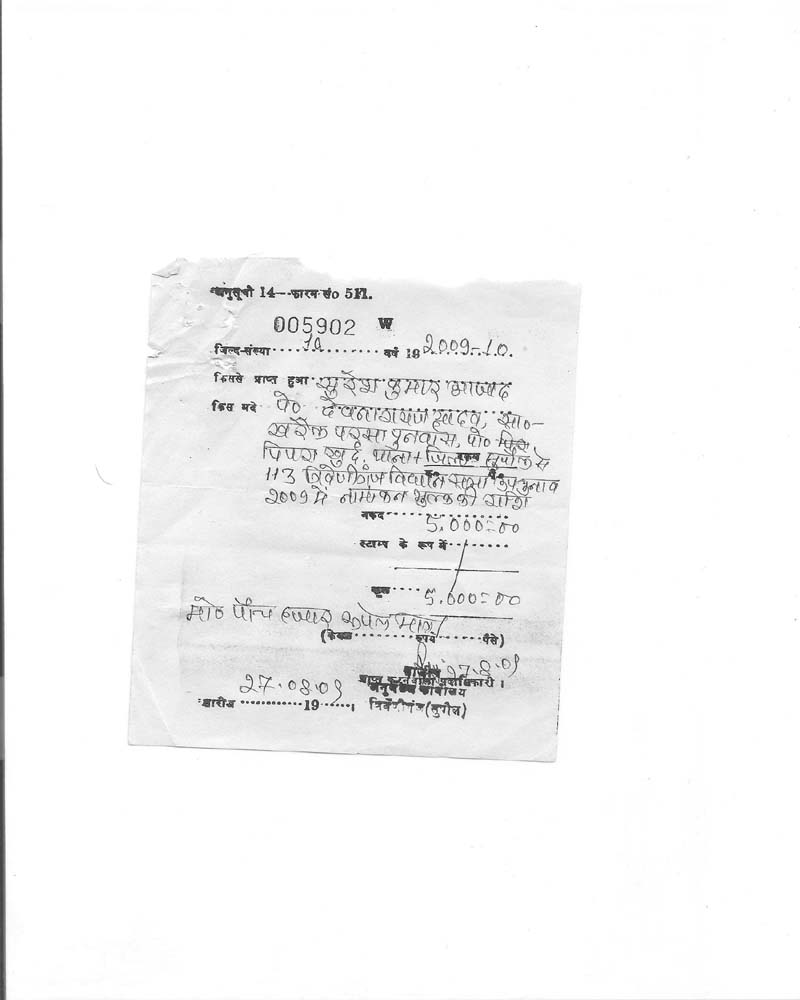 अनुसूची 14—फारम सं० 511.
005902 W
जिल्द-संख्या 10 वर्ष 19 2009-10.
किससे प्राप्त हुआ सुरेश कुमार आजाद
किस मदे पे० देवनारायण यादव, सा०-
परसा पुनर्वास, पो०
पिपरा खुर्द, थाना+जिला- सुपौल से
113 त्रिवेणीगंज विधान सभा उप चुनाव
2009 मे नामांकन शुल्क की राशि
नकद 5,000=00
स्टाम्प के रूप में
कुल 5,000=00
मो० पाँच हजार रूपये मात्र
(केवल रुपये पैसे)
27.8.09
प्राप्त करनेवाला पदाधिकारी।
27.08.09 कार्यालय
तारीख 19 । त्रिवेणीगंज (सुपौल)